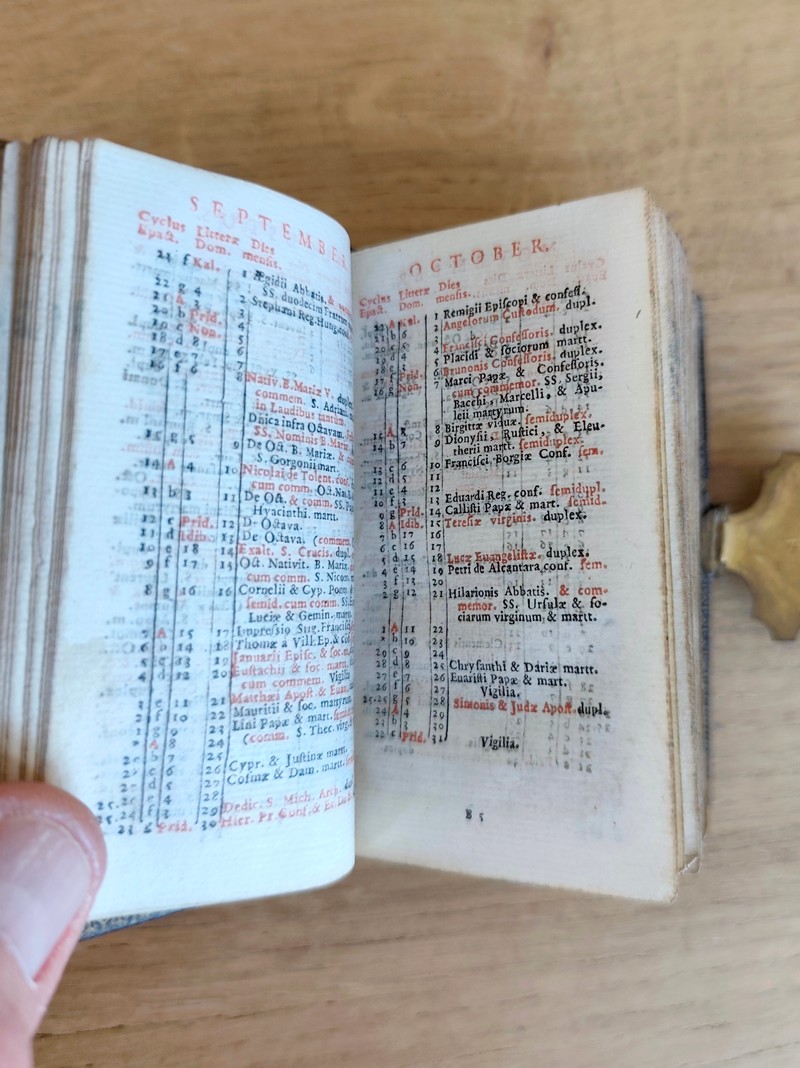 SEPTEMBER
Cyclus Litteræ Dies
Epact. Dom. mensis.
23 f Kal. 1 Ægidii Abbatis, &
SS. duodecim Fratrum
22 g 4 2 Stephani Reg. Hung.
21 A 3 3
20 b Prid. 4
19 c Non. 5
18 d 8 6
17 e 7 7
16 f 6 8 Nativ. B. Mariæ V.
commem. S. Adriani
in Laudibus tantum.
Dñica infra Octavam.
SS. Nominis B. Mariæ
15 g 5 9 De Oct. B. Mariæ. &
S. Gorgonii mart.
14 A 4 10 Nicolai de Tolent. conf.
cum comm. Oct. Nat.
13 b 3 11 De Oct. & comm. SS.
Hyacinthi. martt.
12 c Prid. 12 De Octava.
11 d Idib. 13 De Octava. (commem.
10 e 18 14 Exalt. S. Crucis. dupl.
9 f 17 15 Oct. Nativit. B. Mariæ.
cum comm. S. Nicom.
8 g 16 16 Cornelii & Cyp. Pont.
semid. cum comm. SS.
Luciæ & Gemin. mart.
7 A 15 17 Impressio Stig. Francisci
6 b 14 18 Thomæ à Vill. Ep. & cof.
5 c 13 19 Januarii Episc. & soc. m.
4 d 12 20 Eustachii & soc. mart.
cum commem. Vigiliæ
3 e 11 21 Matthæi Apost. & Euan.
2 f 10 22 Mauritii & soc. martyrum.
1 g 9 23 Lini Papæ & mart.
(comm. S. Thec. virg.
* A 8 24
b 7 25
c 6 26 Cypr. & Justinæ mart.
d 5 27 Cosmæ & Dam. mart.
e 4 28
25.24. f 3 29 Dedic. S. Mich. Arch. dupl.
23 g Prid. 30 Hier. Pr. Conf. & Ec.
OCTOBER.
Cyclus Litteræ Dies
Epact. Dom. mensis.
22 A Kal. 1 Remigii Episcopi & confess.
21 b 6 2 Angelorum Custodum. dupl.
20 c 5 3
19 d 4 4 Francisci Confessoris. duplex.
18 e 3 5 Placidi & sociorum martt.
17 f Prid. 6 Brunonis Confessoris. duplex.
16 g Non. 7 Marci Papæ & Confessoris.
cum commemor. SS. Sergii,
Bacchi, Marcelli, & Apu-
leii martyrum.
15 A 8 8 Birgittæ viduæ. semiduplex.
14 b 7 9 Dionysii, Rustici, & Eleu-
therii mart. semiduplex.
13 c 6 10 Francisci Borgiæ Conf. sem.
12 d 5 11
11 e 4 12
10 f 3 13 Eduardi Reg. conf. semidupl.
9 g Prid. 14 Callisti Papæ & mart. semid.
8 A Idib. 15 Teresiæ virginis. duplex.
7 b 17 16
6 c 16 17
5 d 15 18 Lucæ Euangelistæ. duplex.
4 e 14 19 Petri de Alcantara conf. sem.
3 f 13 20
2 g 12 21 Hilarionis Abbatis. & com-
memor. SS. Ursulæ & so-
ciarum virginum & martt.
1 A 11 22
* b 10 23
29 c 9 24
28 d 8 25 Chrysanthi & Dariæ martt.
27 e 7 26 Euaristi Papæ & mart.
26 f 6 27 Vigilia.
25.25 g 5 28 Simonis & Judæ Apost. dupl.
24 A 4 29
23 b 3 30
22 c Prid. 31 Vigilia.
B 5